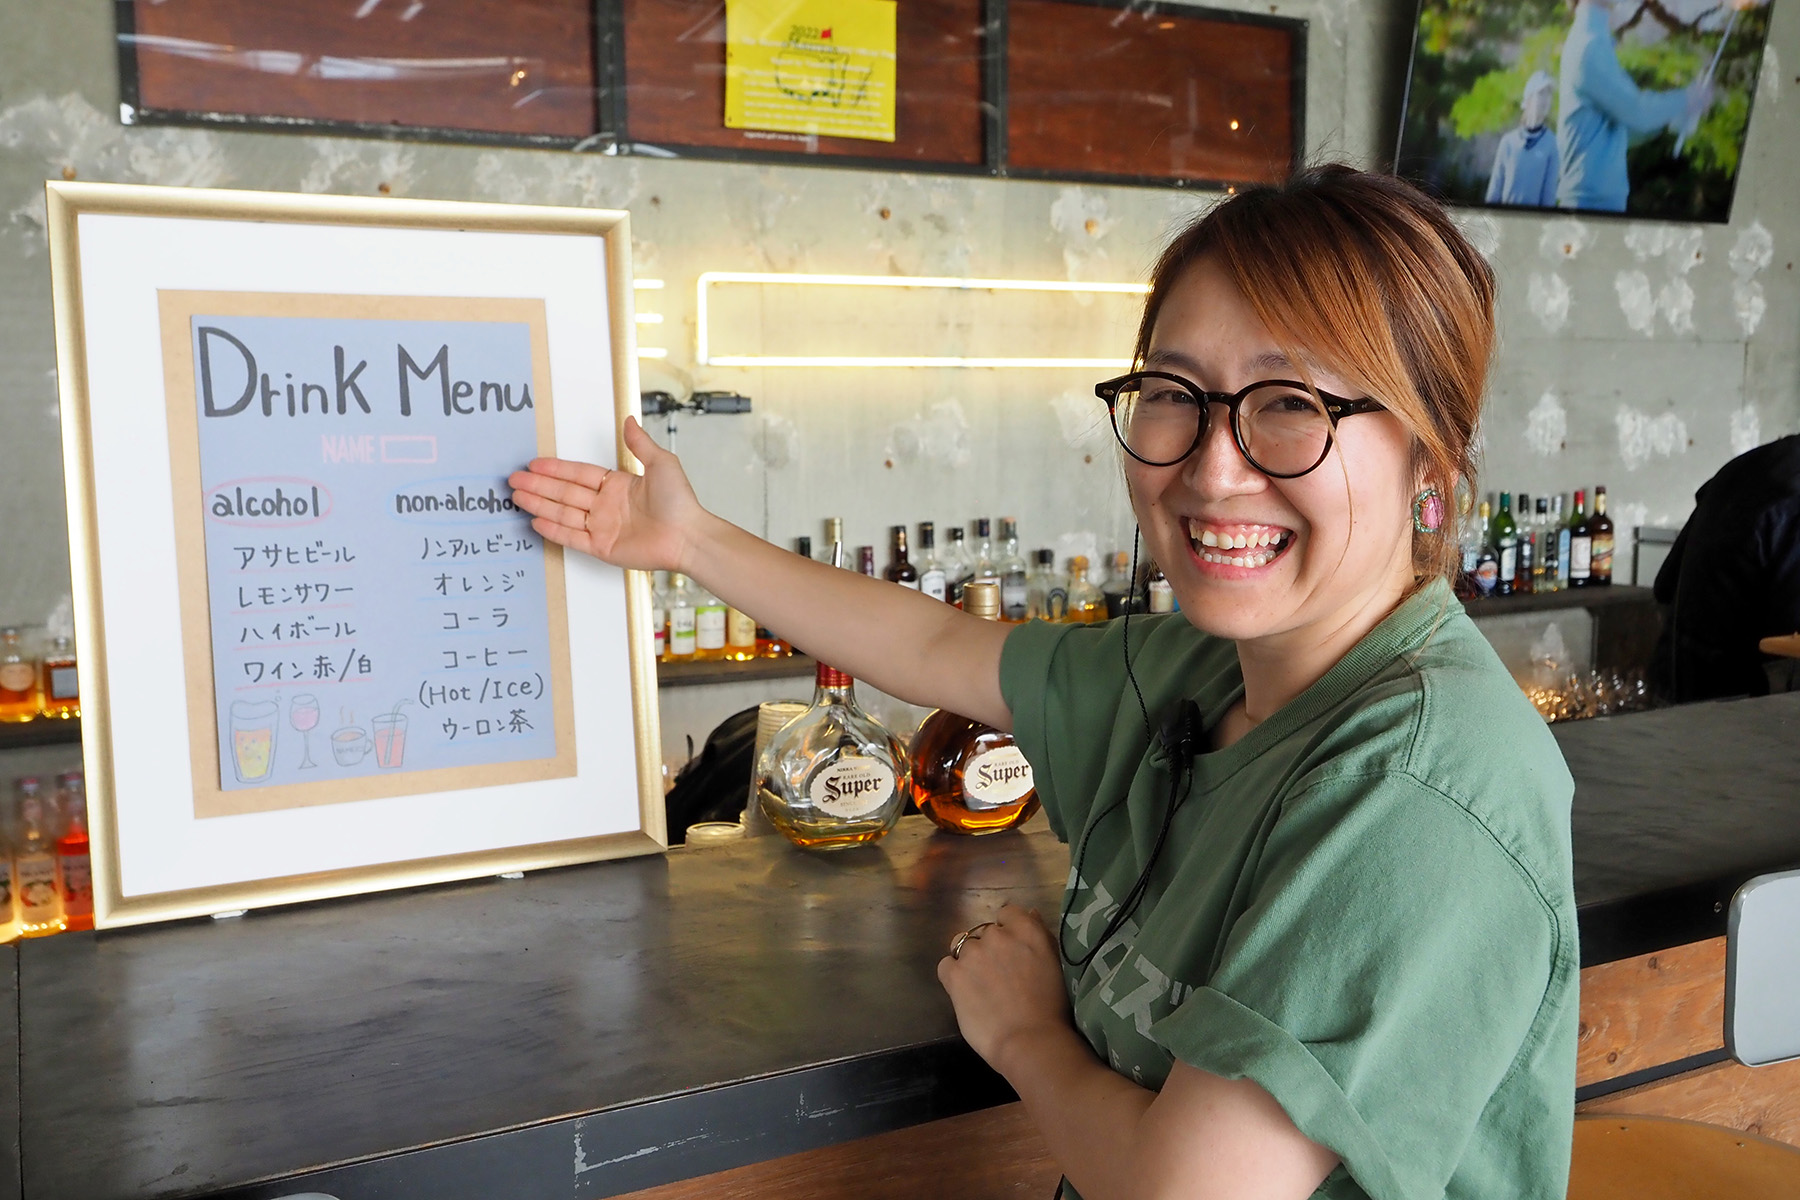 2022
Masters
Drink Menu
NAME
alcohol
アサヒビール
レモンサワー
ハイボール
ワイン赤/白
non-alcohol
ノンアルビール
オレンジ
コーラ
コーヒー
(Hot/Ice)
ウーロン茶
RARE OLD
Super
RARE OLD
Super